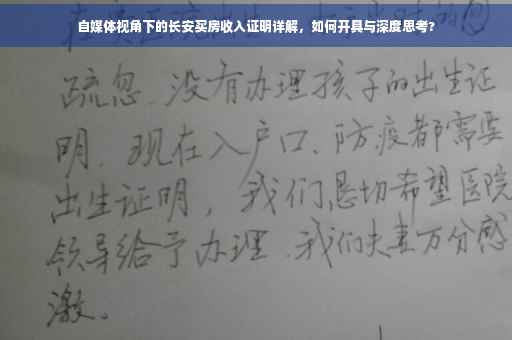 自媒体视角下的长安买房收入证明详解，如何开具与深度思考?
疏忽、没有办理孩子的出生证
明、现在入户口、防疫都需要
出生证明，我们恳切希望医院
领导给予办理、我们夫妻万分感
激。